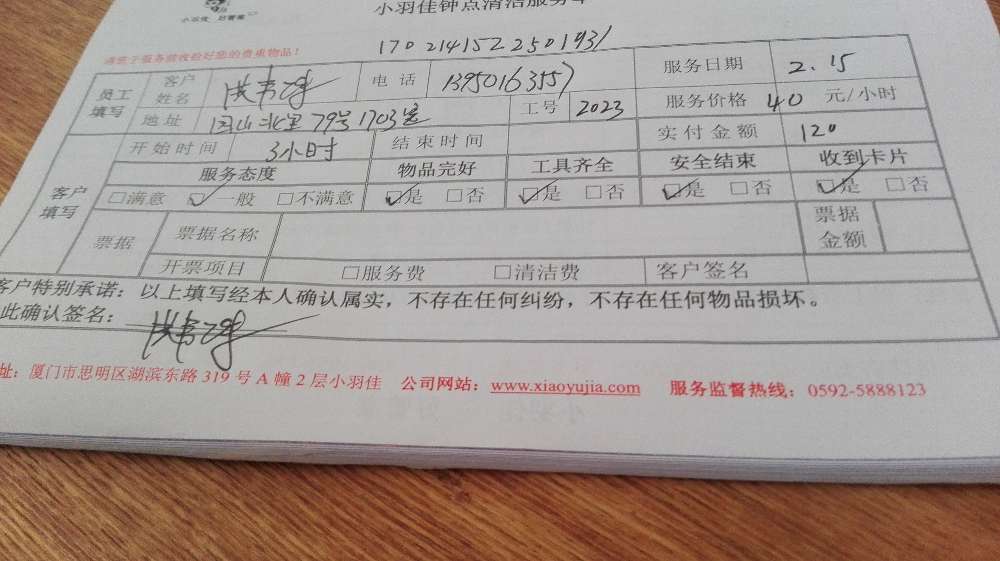 小羽佳 好管家
小羽佳钟点清洁服务单
请您于服务前收拾好您的贵重物品！
170214152250193/
员工填写 客户姓名 电话 13950163557 服务日期 2.15
地址 园山北里79号1703室 工号 2023 服务价格 40 元/小时
客户填写 开始时间 3小时 结束时间 实付金额 120
服务态度 物品完好 工具齐全 安全结束 收到卡片
□满意 ☑一般 □不满意 ☑是 □否 ☑是 □否 ☑是 □否 ☑是 □否
票据 票据名称 票据金额
开票项目 □服务费 □清洁费 客户签名
客户特别承诺：以上填写经本人确认属实，不存在任何纠纷，不存在任何物品损坏。
此确认签名：
址：厦门市思明区湖滨东路 319 号 A 幢 2 层小羽佳 公司网站：www.xiaoyujia.com 服务监督热线：0592-5888123